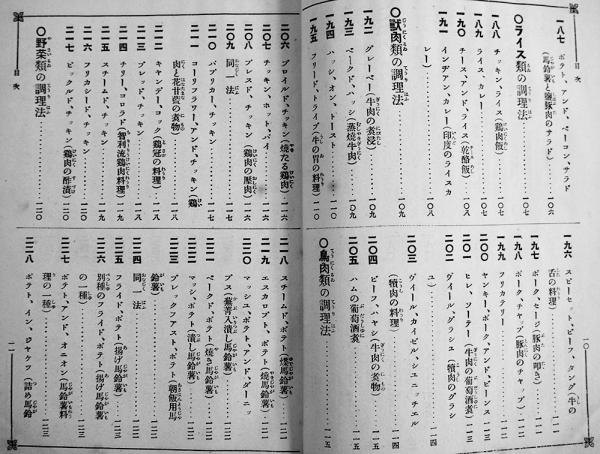 一八七 ポラト、アンド、ベーコン、サラド
(馬鈴薯と鹽豚肉のサラド)……一〇六
〇ライス類の調理法
一八八 チッキン、ライス(鶏肉飯)……一〇七
一八九 ライス、カレー……一〇七
一九〇 チース、アンド、ライス(乾酪飯)……一〇七
一九一 インデアン、カレー(印度のライスカレー)……一〇八
〇獣肉類の調理法
一九二 グレーベー(牛肉の煮浸)……一〇九
一九三 ベークド、ハッシ(蒸焼牛肉)……一〇九
一九四 ハッシ、オン、トースト……一〇九
一九五 フリード、トライプ(牛の胃の料理)……一一〇
一九六 スピーセット、ビーフ、タング(牛の
舌の料理)……一一〇
一九七 ポーク、セージ(豚肉の叩き)……一一一
一九八 ポーク、チャップ(豚肉のチャップ)……一一二
一九九 フリカッテリー……一一二
二〇〇 ヤンキー、ポーク、アンド、ビーンス……一一三
二〇一 ヒレ、ソーテー(牛肉の葡萄酒煮)……一一三
二〇二 ヴイール、グラシュ(犢肉のグラシ
ユ)……一一四
二〇三 ヴイール、カイゼル、シュニッチエル
(犢肉の料理)……一一四
二〇四 ビーフ、ハヤシ(牛肉の煮物)……一一五
二〇五 ハムの葡萄酒煮……一一五
〇鳥肉類の調理法
一〇
目次
二〇六 ブロイルド、チッキン(焼たる鶏肉)……一一六
二〇七 チッキン、ホット、パイ……一一六
二〇八 ブレスド、チッキン(鶏肉の壓肉)……一一六
二〇九 同 法……一一七
二一〇 パプリカー、チッキン……一一七
二一一 コーリフラワー、アンド、チッキン(鶏
肉と花甘藍の煮物)……一一八
二一二 キャンデー、コック(鶏冠の料理)……一一八
二一三 ブレッド、チッキン……一一八
二一四 チリー、コロラド(智利流鶏肉料理)……一一九
二一五 スチームド、チッキン……一二〇
二一六 フリカシード、チッキン……一二〇
二一七 ピックルド、チッキン(鶏肉の酢漬)……一二〇
〇野菜類の調理法……一二〇
二一八 スチームド、ポラト(煉馬鈴薯)……一二一
二一九 エスカロプト、ポラト(焼馬鈴薯)……一二一
二二〇 マッシュ、ポラト、アンド、ダーニッ
プス(蕪菁入潰し馬鈴薯)……一二一
二二一 ベークド、ポラト(焼き馬鈴薯)……一二二
二二二 マッシ、ポラト(潰し馬鈴薯)……一二二
二二三 ブレックフアスト、ポラト(朝飯用馬
鈴薯)……一二二
二二四 同 法……一二二
二二五 フライド、ポラト(揚げ馬鈴薯)……一二三
二二六 別種のフライド、ポラト(揚げ馬鈴薯
の一種)……一二三
二二七 ポラト、アンド、オニオン(馬鈴薯料
理の一種)……一二三
二二八 ポラト、イン、ジヤケツ(詰め馬鈴
目次
一一